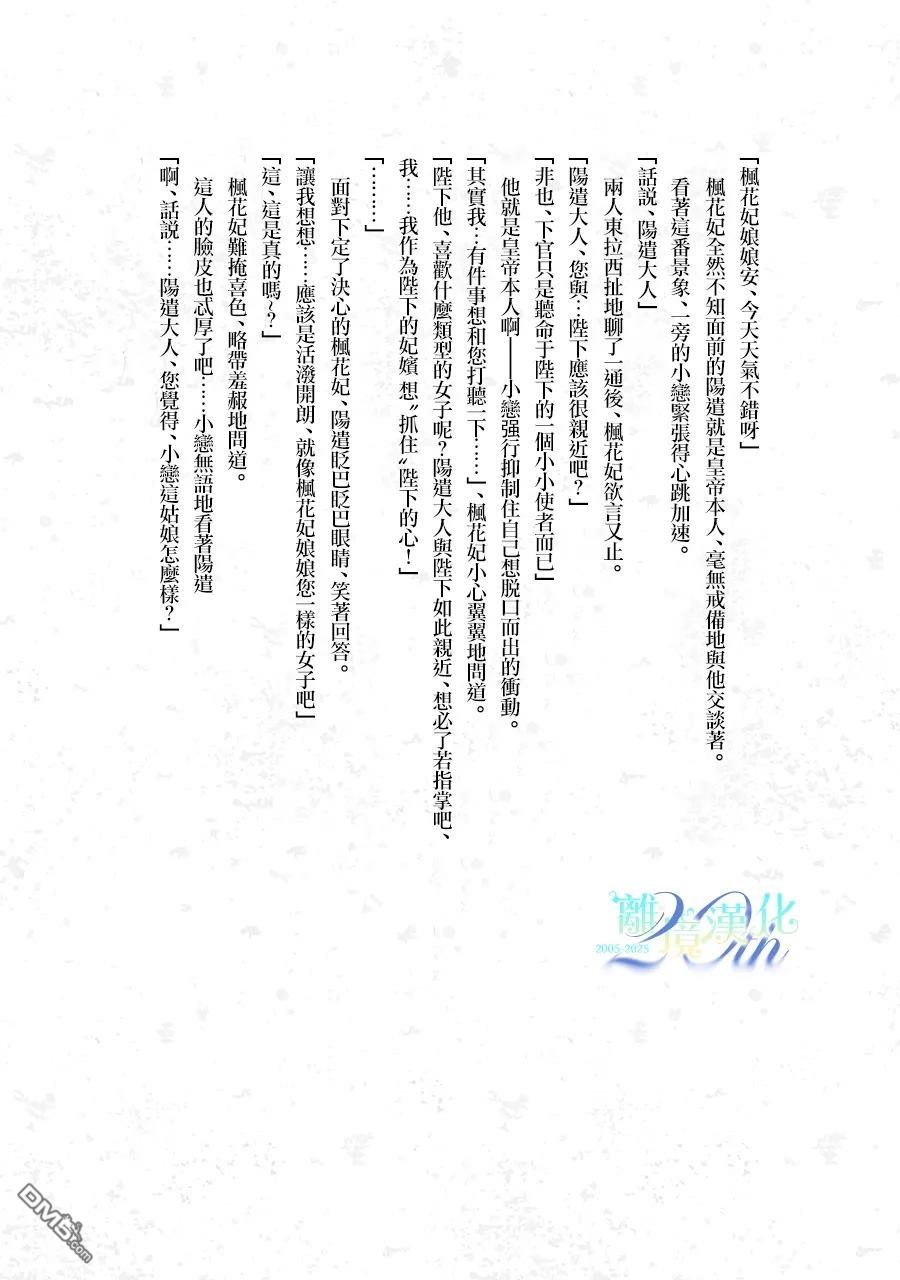 「楓花妃娘娘安、今天天氣不錯呀」
楓花妃全然不知面前的陽遣就是皇帝本人、毫無戒備地與他交談著。
看著這番景象、一旁的小戀緊張得心跳加速。
「話説、陽遣大人」
兩人東拉西扯地聊了一通後、楓花妃欲言又止。
「陽遣大人、您與…陛下應該很親近吧?」
「非也、下官只是聽命于陛下的一個小小使者而已」
他就是皇帝本人啊——小戀强行抑制住自己想脫口而出的衝動。
「其實我…有件事想和您打聽一下……」、楓花妃小心翼翼地問道。
「陛下他、喜歡什麼類型的女子呢?陽遣大人與陛下如此親近、想必了若指掌吧、
我……我作為陛下的妃嬪 想〝抓住〞陛下的心!」
「………」
面對下定了決心的楓花妃、陽遣眨巴眨巴眼睛、笑著回答。
「讓我想想……應該是活潑開朗、就像楓花妃娘娘您一樣的女子吧」
「這、這是真的嗎~?」
楓花妃難掩喜色、略帶羞赧地問道。
這人的臉皮也忒厚了吧……小戀無語地看著陽遣
「啊、話説……陽遣大人、您覺得、小戀這姑娘怎麼樣?」
離境漢化
2005-2025
20th
DM5.com